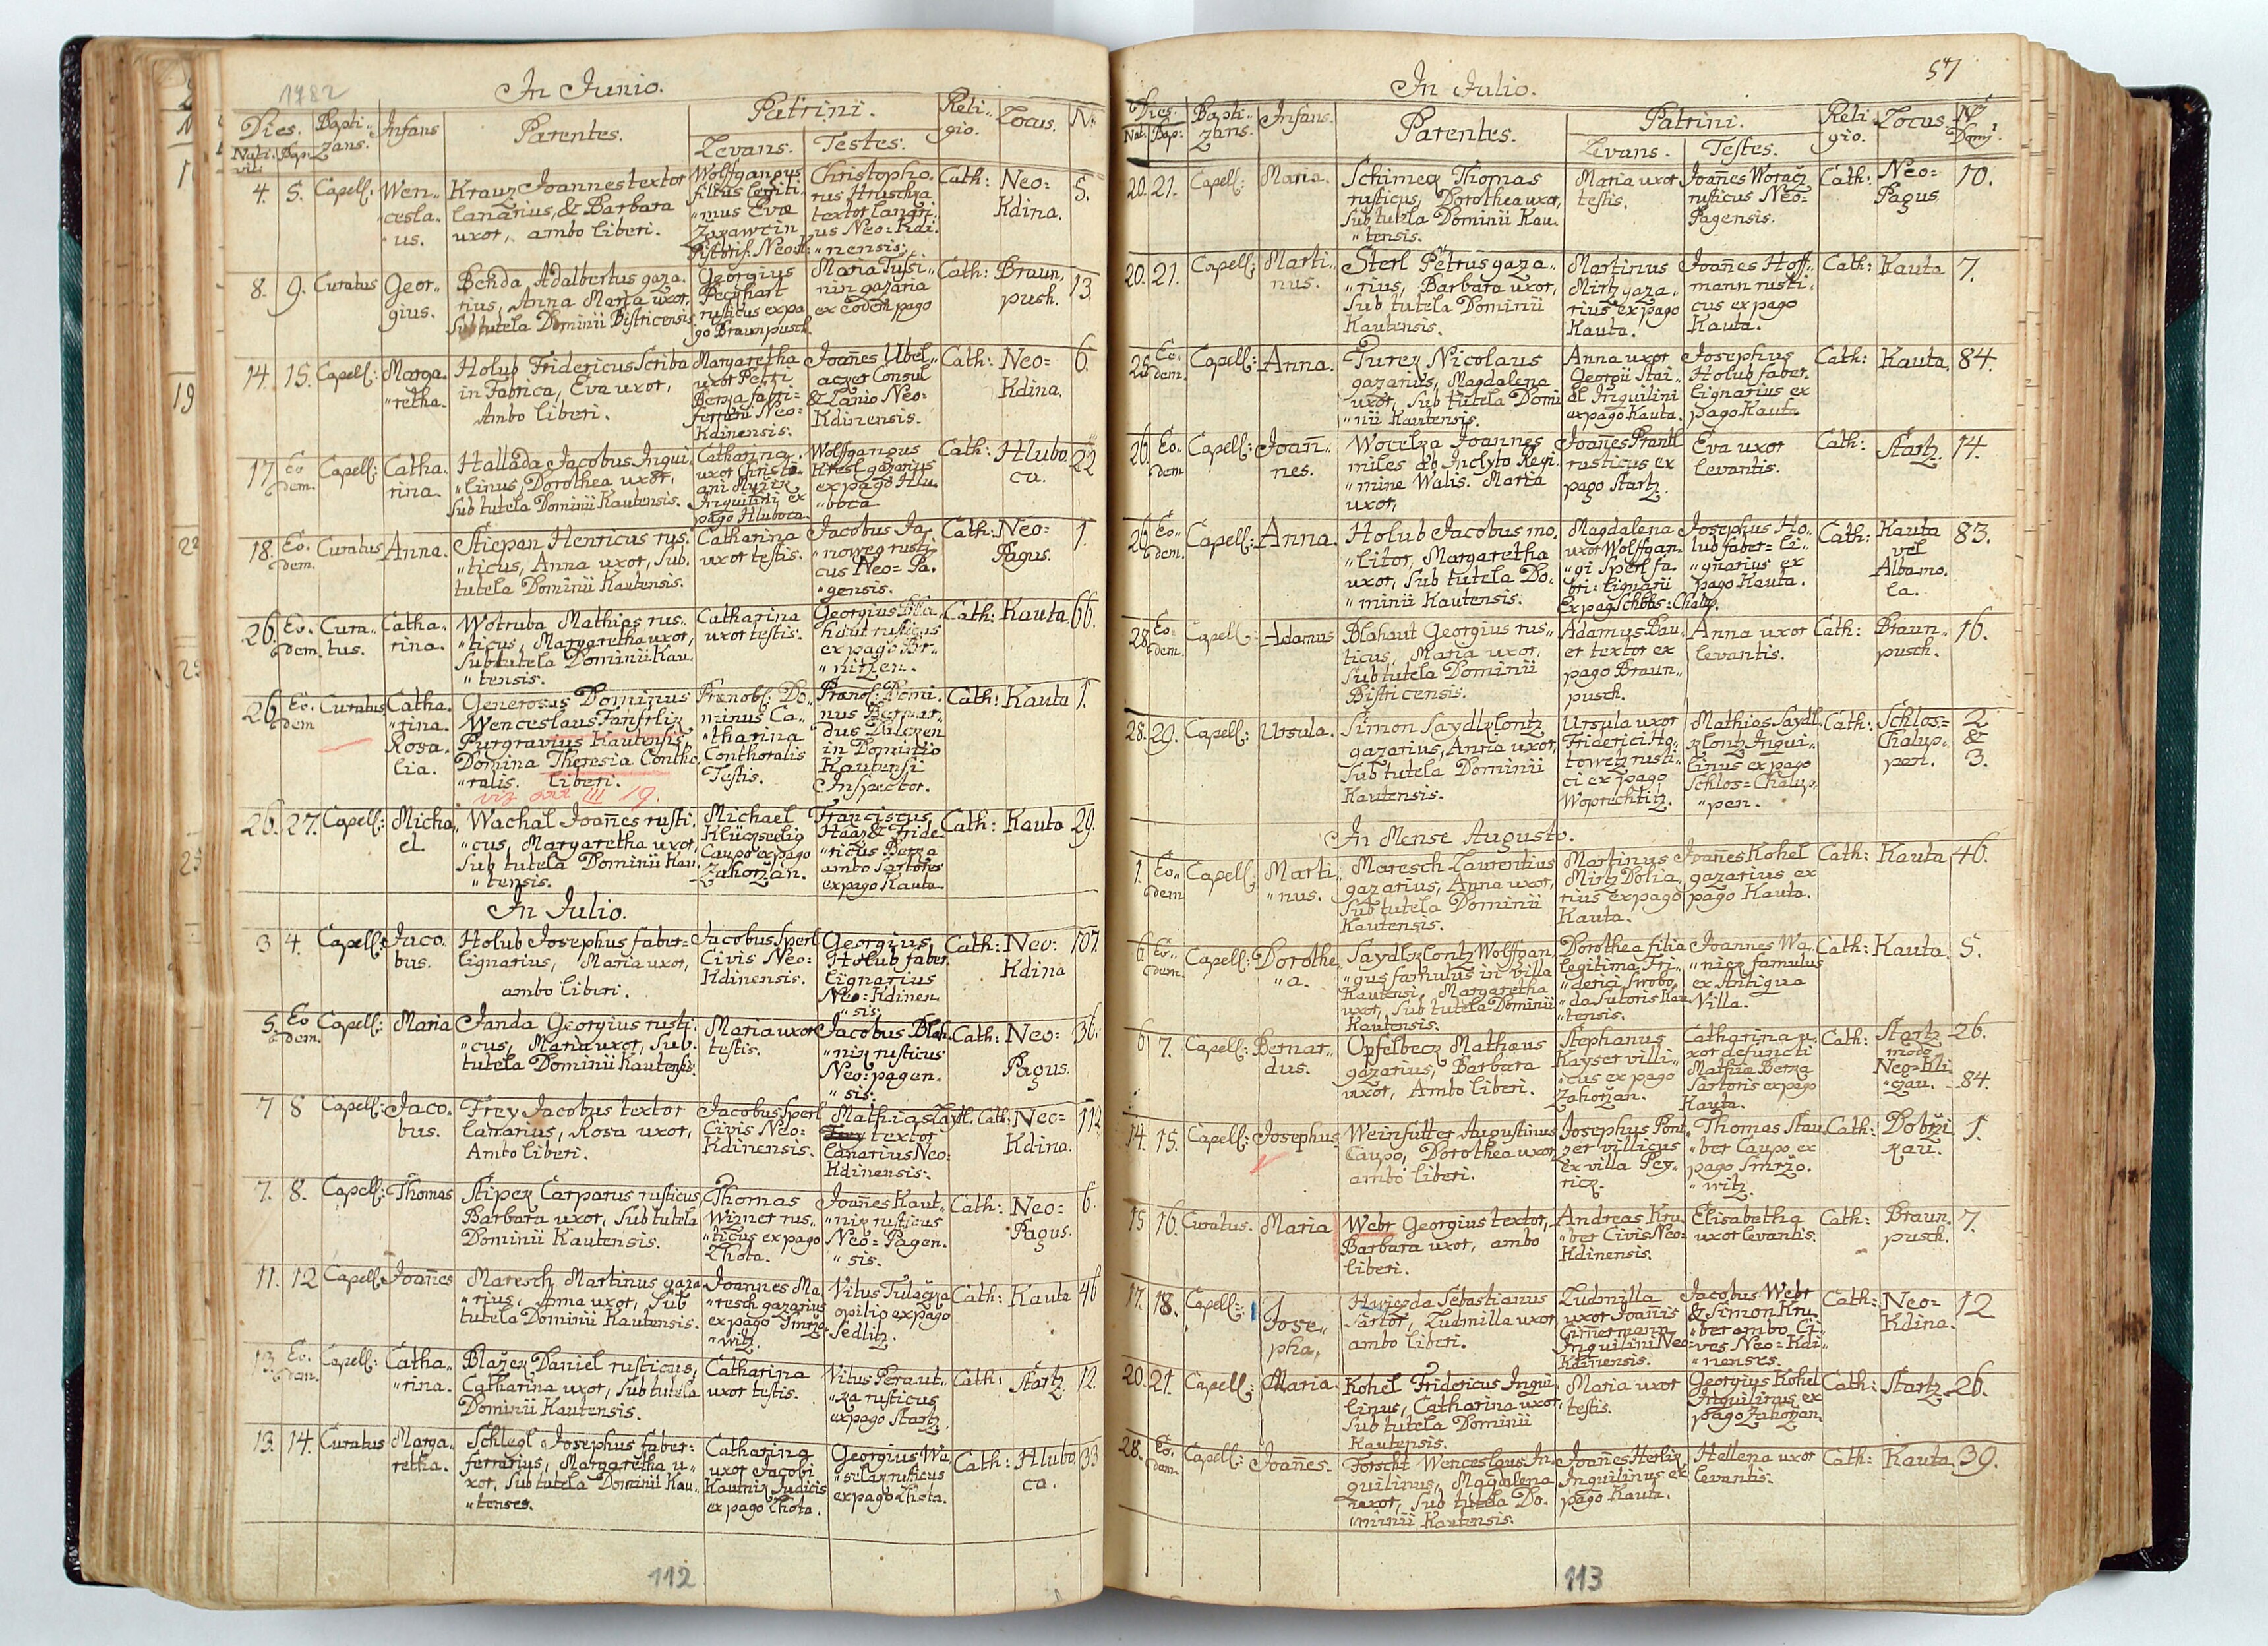 1782
In Junio.
Dies. Bapti- Infans Parentes. Patrini. Reli- Locus. N:
Nati- Bap: zans. Levans. Testes. gio.
vit:
4. 5. Capell: Wen-
"cesla.
"us.
Krauz Joannes textor
lanarius, & Barbara
uxor, ambo liberi.
Wolffgangus
filius legiti-
"mus Evæ
Christopho.
rus Hruschka
textor lanari-
us Neo=Kdi.
"nensis.
Cath: Neo=
Kdina.
5.
8. 9. Curatus Geor-
gius.
Benda Adalbertus gaza.
rius, Anna Maria uxor,
Sub tutela Dominii Bistricensis
Georgius
Pechhart
rusticus ex pa
go Braunpusch
Maria Tusi-
nin gazaria
ex eodem pago
Cath: Braun,
pusch.
13.
14. 15. Capell: Marga.
"retha.
Holub Fridericus Scriba
in Fabrica, Eva uxor,
Ambo liberi.
Margaretha
uxor Petri
Berza fabri=
ferrarii Neo=
Kdinensis.
Joañes Übel-
aczer Consul
& Lanio Neo=
Kdinensis.
Cath: Neo=
Kdina.
6.
17. Eo
dem. Capell: Catha-
rina.
Hallada Jacobus Inqui.
"linus, Dorothea uxor,
Sub tutela Dominii Kautensis.
Catharina
uxor Christi-
ani
Inquilini ex
pago Hluboca.
Wolffgangus
Kresl gazarius
ex pago Hlu
"boca.
Cath: Hlubo
ca.
22
18. Eo.
dem. Curatus Anna.
Stiepan Henricus rus.
"ticus, Anna uxor, Sub.
tutela Dominii Kautensis.
Catharina
uxor testis.
Jacobus Ja.
"noweg rusti.
cus Neo=Pa.
"gensis.
Cath: Neo=
Pagus.
1.
26. Eo.
dem. Cura-
tus. Catha-
rina.
Wotruba Mathias rus.
"ticus, Margaretha uxor,
Sub tutela Dominii Kau.
"tensis.
Catharina
uxor testis.
Georgius Bla.
haut rusticus
ex pago Br-
"nitzen.
Cath: Kauta 66.
26 Eo.
dem Curatus Catha.
"rina
Rosa.
lia.
Generosus Dominus
Wenceslaus Fanfrliz
Purgravius Kautensis,
Domina Theresia Contho.
"ralis. liberi.
viz III 19.
Prænob: Do.
minus Ca-
"tharina
Conthoralis
Testis.
Prænob: Domi.
nus Bernar.
"dus Dulczen
in Dominio
Kautensi
Inspector.
Cath: Kauta 1.
26. 27. Capell: Micha
el.
Wachal Joañes rusti.
"cus, Margaretha uxor,
Sub tutela Dominii Kau.
"tensis.
Michael
Klüczselig
Caupo ex pago
Zahorzan.
Franciscus
Haaz & Fride-
"ricus Berza
ambo sartores
ex pago Kauta.
Cath: Kauta 29.
In Julio.
3 4. Capell: Jaco.
bus.
Holub Josephus faber=
lignarius, Maria uxor,
ambo liberi.
Jacobus Sperl
Civis Neo=
Kdinensis.
Georgius
Holub faber.
lignarius
Neo=Kdinen
"sis.
Cath: Neo=
Kdina
107.
5. Eo
dem. Capell: Maria
Janda Georgius rusti.
"cus, Maria uxor, Sub.
tutela Dominii Kautensis.
Maria uxor
testis.
Jacobus Blah.
"niz rusticus
Neo=pagen.
"sis.
Cath: Neo=
Pagus.
36.
7 8 Capell: Jaco.
bus.
Frey Jacobus textor
lanarius, Rosa uxor,
Ambo liberi.
Jacobus Sperl
Civis Neo=
Kdinensis.
Mathias Laytl
textor
lanarius Neo=
Kdinensis.
Cath: Neo=
Kdina.
112
7. 8. Capell: Thomas
Stipez Carparus rusticus,
Barbara uxor, Sub tutela
Dominii Kautensis.
Thomas
Wizner rus-
"ticus ex pago
Lhota.
Joañes Kaut-
"niz rusticus
Neo=Pagen.
"sis.
Cath: Neo=
Pagus.
6.
11. 12 Capell: Joañes
Maresch Martinus gaza
"rius, Anna uxor, Sub
tutela Dominii Kautensis.
Joannes Ma.
"resch gazarius
ex pago Smržo.
"witz.
Vitus Tulačzka
opilio ex pago
Sedlitz.
Cath: Kauta 46
13. Eo.
dem. Capell: Catha-
"rina.
Blažek Daniel rusticus,
Catharina uxor, Sub tutela
Dominii Kautensis.
Catharina
uxor testis.
Vitus Peraut-
"ka rusticus
ex pago Startz.
Cath: Startz. 12.
13. 14. Curatus Marga-
retha.
Schlegl Josephus faber:
ferrarius, Margaretha u-
xor, Sub tutela Dominii Kau-
"tenses.
Catharina
uxor Jacobi
Kautniz Judicis
ex pago Lhota.
Georgius Wa
"selaz rusticus
ex pago Lhota.
Cath: Hlubo.
ca.
33
112
57
In Julio.
Dies. Bapti- Infans. Parentes. Patrini. Reli Locus. Nº
Nat: Bap: zans. Levans. Testes. gio. Domº
20. 21. Capell: Maria.
Schimeg Thomas
rusticus, Dorothea uxor,
Sub tutela Dominii Kau.
"tensis.
Maria uxor
testis.
Joañes Woraž
rusticus Neo=
Pagensis.
Cath: Neo=
Pagus
10.
20. 21. Capell: Marti-
nus.
Sterl Petrus gaza-
"rius, Barbara uxor,
Sub tutela Dominii
Kautensis.
Martinus
Mirtz gaza-
rius ex pago
Kauta.
Joañes Hoff-
mann rusti-
cus ex pago
Kauta.
Cath: Kauta 7.
25. Eo-
dem. Capell: Anna.
Turek Nicolaus
gazarius, Magdalena
uxor, Sub tutela Domi
"nii Kautensis.
Anna uxor
Georgii Stai-
dl Inquilini
ex pago Kauta.
Josephus
Holub faber.
lignarius ex
pago Kauta
Cath: Kauta. 84.
26. Eo-
dem Capell: Joañ-
nes.
Wocelka Joannes
miles de Inclyto Regi.
"mine Walis. Maria
uxor,
Joañes Prantl
rusticus ex
pago Startz.
Eva uxor
levantis.
Cath: Startz. 14.
26. Eo-
dem. Capell: Anna.
Holub Jacobus mo.
"litor, Margaretha
uxor, Sub tutela Do.
"minii Kautensis.
Magdalena
uxor Wolffgan.
"gi Sperl fa.
bri=lignarii
Ex pag Schlos=Chalp.
Josephus Ho-
lub faber=li-
"gnarius ex
pago Kauta.
Cath: Kauta
vel
Altamo.
la.
83.
28. Eo-
dem. Capell: Adamus
Blahaut Georgius rus-
ticus, Maria uxor,
Sub tutela Dominii
Bistricensis.
Adamus Bau-
er textor ex
pago Braun-
pusch.
Anna uxor
levantis.
Cath: Braun-
pusch.
16.
28. 29. Capell: Ursula.
Simon Saydlzlontz
gazarius, Anna uxor,
Sub tutela Dominii
Kautensis.
Ursula uxor
Friderici Ho-
towetz rusti-
ci ex pago
Woprechtitz.
Mathias Saydl.
zlontz Inqui-
linus ex pago
Schlos=Chalup.
"pen.
Cath: Schlos=
Chalup-
pen.
2
&
3.
In Mense Augusto.
1. Eo-
dem Capell: Marti
"nus.
Maresch Laurentius
gazarius, Anna uxor,
Sub tutela Dominii
Kautensis.
Martinus
Mirtz Dolia
rius ex pago
Kauta.
Joañes Kohel
gazarius ex
pago Kauta.
Cath: Kauta 46.
6. Eo-
dem. Capell: Dorothe
"a.
Saydlzlontz Wolffgan.
"gus famulus in villa
Kautensi, Margaretha
uxor, Sub tutela Dominii
Kautensis.
Dorothea filia
legitima Fri-
"derici Swobo.
"da Sutoris Kau
"tensis.
Joannes Wa.
"niez famulus
ex Antiqua
Villa.
Cath: Kauta. 5.
6 7. Capell: Bernar-
dus.
Opfelbeck Mathæus
gazarius, Barbara
uxor, Ambo liberi.
Stephanus
Kayser villi-
"cus ex pago
Zahorzan.
Catharina u.
xor defuncti
Mathiæ Berza
Sartoris ex pago
Kauta.
Cath: Startz
modo
Neo=Kli
"czau.
26.
84.
14. 15. Capell: Josephus
Weinfutter Augustinus
Caupo, Dorothea uxor
ambo liberi.
Josephus Pont
zer villicus
ex villa Pey-
ricz.
Thomas Stau
"ber Caupo ex
pago Smržo.
"witz.
Cath: Dobrži
kau.
1.
15 16. Curatus. Maria
Webr Georgius textor,
Barbara uxor, ambo
liberi.
Andreas Kru
"ber Civis Neo=
Kdinensis.
Elisabetha
uxor levantis.
Cath: Braun.
pusch.
7.
17. 18. Capell: Jose-
pha,
Hwiezda Sebastianus
Sartor, Ludmilla uxor
ambo liberi.
Ludmilla
uxor Joañis
Cim̃ermann
Inquilini Neo=
Kdinensis.
Jacobus Webr
& Simon Kru
"ber ambo Ci-
ves Neo=Kdi-
"nenses.
Cath: Neo=
Kdina.
12
20. 21. Capell: Maria.
Kohel Fridericus Inqui-
linus, Catharina uxor
Sub tutela Dominii
Kautensis.
Maria uxor
testis.
Georgius Kohel
Inquilinus ex
pago Zahorzan
Cath: Startz 26.
28. Eo.
dem Capell: Joañes.
Forscht Wenceslaus In-
quilinus, Magdalena
uxor, Sub tutela Do.
"minii Kautensis.
Joañes Herliz
Inquilinus ex
pago Kauta.
Hellena uxor
levantis.
Cath: Kauta 39.
113